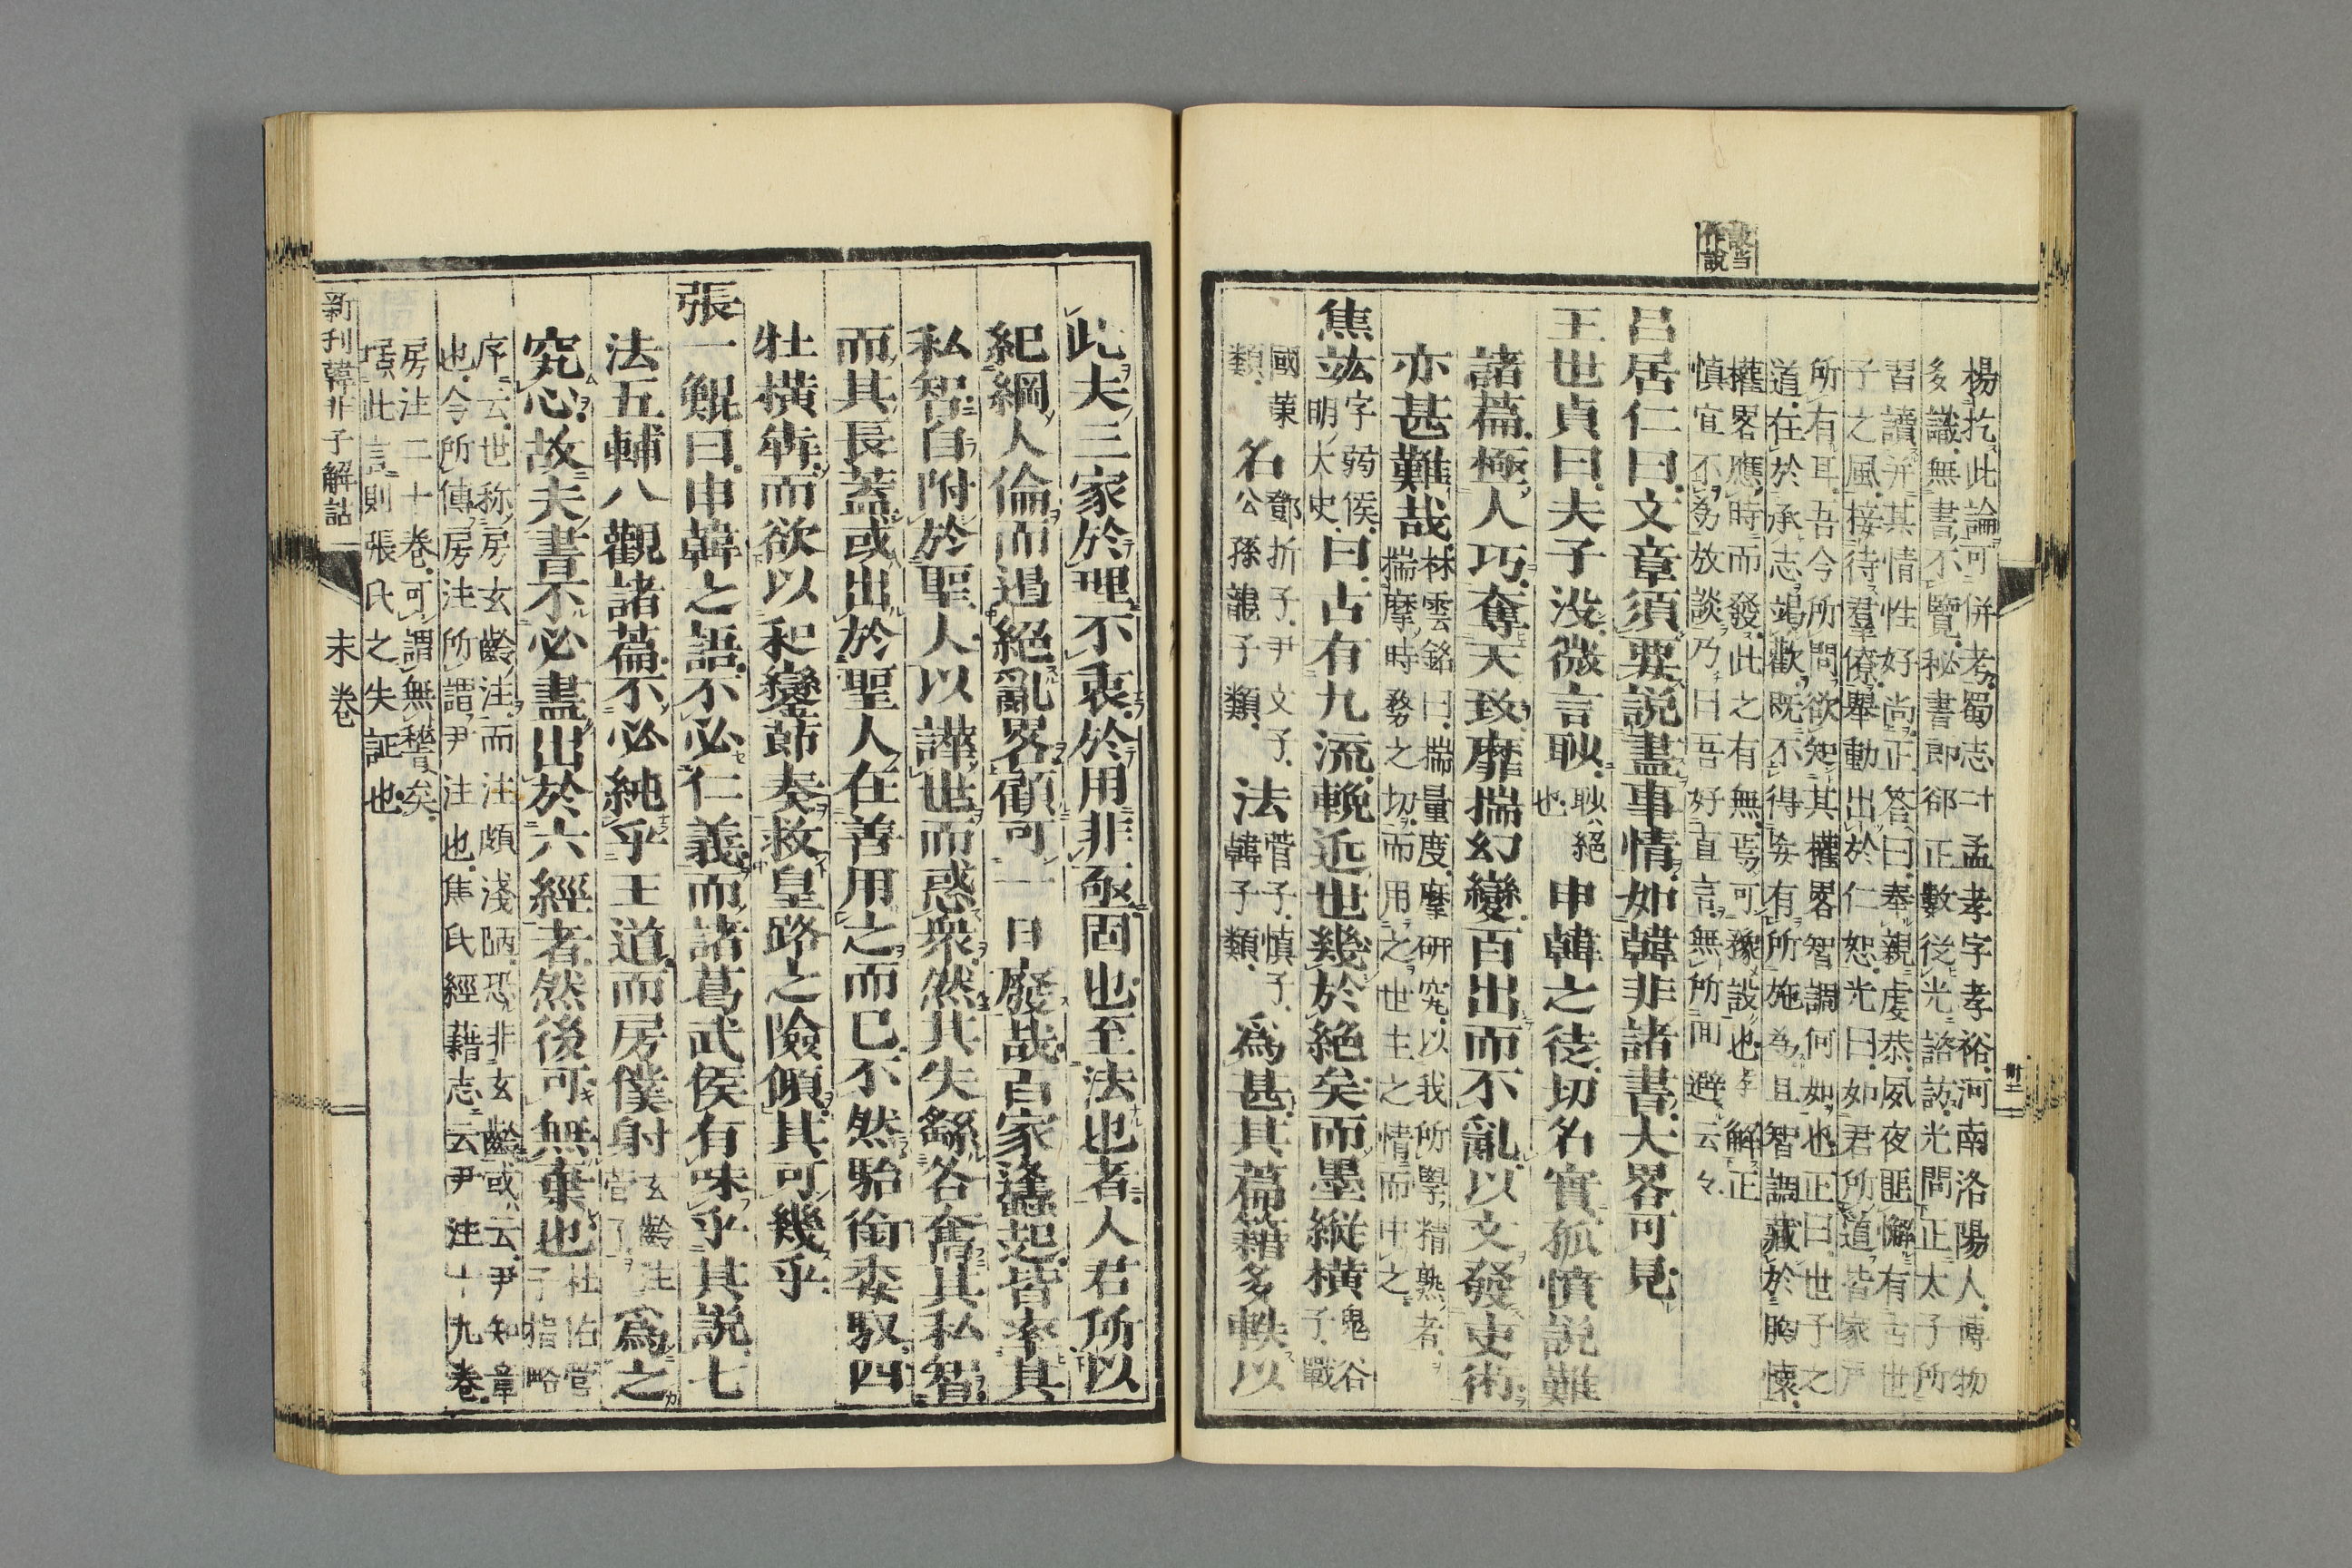 楊抡此論可併考蜀志二十孟孝字孝裕河南洛陽人博物
多識無書不覽秘書郎郤正數從光諮訪光問正太子所
習讀并其情性好尚正答曰奉親虔恭夙夜匪懈有古世
子之風接待羣僚舉動出於仁恕光曰如君所道皆家戸
所有耳吾今所問欲知其權畧智調何如也正曰世子之
道在於承志竭歡既不得妄有所施為且智調藏於胸懷
權畧應時而發此之有無焉可豫設也孝解正
慎宜不爲放談乃曰吾好直言無所囬避云々
作說
呂居仁曰文章須要說盡事情如韓非諸書大畧可見
王世貞曰夫子没微言耿
耿絕
也
申韓之徒切名實孤憤説難
諸篇極人巧奪天致靡揣幻變百出而不亂以文發史術
亦甚難哉
林雲銘曰揣量度摩研究以我所學精熟者
揣摩時務之切而用之世主之情而中之
焦竑
字弱侯
明大史
曰古有九流輓近世幾於絕矣而墨縦橫
鬼谷
子戰
國策
類
名
鄧折子尹文子
公孫龍子類
法
管子慎子
韓子類
爲甚其篇籍多軼以
此夫三家於理不衷於用非亟固也至法也者人君所以
紀綱人倫而遏絕亂畧顧可一日廢哉百家蠭起皆率其
私智自附於聖人以譁世而惑衆然其失繇各奮其私智
而其長蓋或出於聖人在善用之而已不然駘銜委馭四
牡橫犇而欲以和鑾節奏救皇路之險傾其可幾乎
張一鯤曰申韓之語不必仁義而諸葛武侯有味乎其説七
法五輔八觀諸篇不必純乎王道而房僕射
玄齡注
管子
爲之
究心故夫書不必盡出於六經者然後可無棄也
杜佑管
子指略
序云世称房玄齡注而注頗淺陋恐非玄齡或云尹知章
也今所傳房注所謂尹注也焦氏經藉志云尹注十九卷
房注二十卷可謂無稽矣
據此言則張氏之失証也
新刊韓非子解詁 末卷